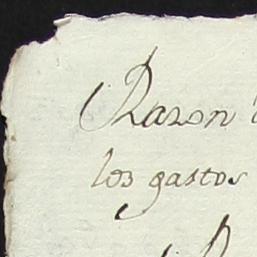 Razon
los gastos